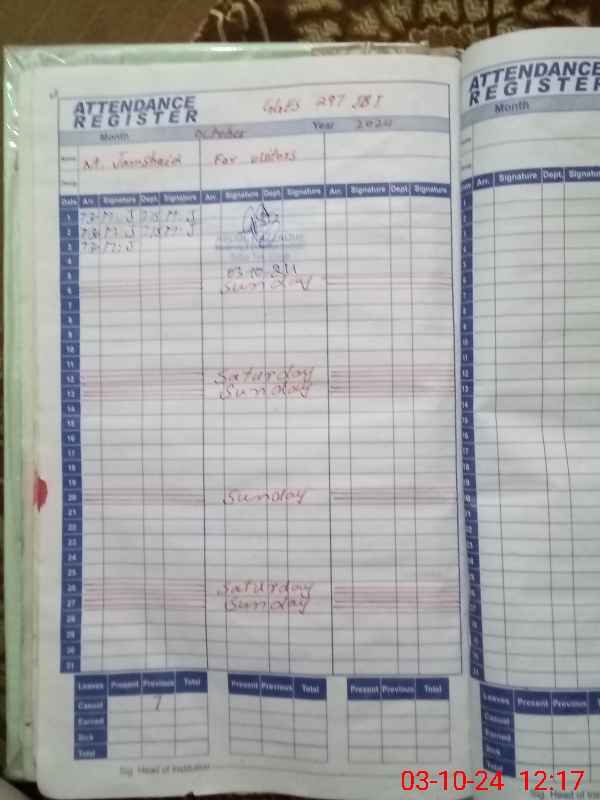 ATTENDANCE
REGISTER
GGES 297 JB I
Month October Year 2024
M. Jamshaid For visitors
Date Arr. Signature Dept. Signature Arr. Signature Dept. Signature Arr. Signature Dept. Signature
1 M. J M. J
2 M. J M. J
3 M. J
4
5
6 Sunday
7
8
9
10
11
12 Saturday
13 Sunday
14
15
16
17
18
19
20 Sunday
21
22
23
24
25
26 Saturday
27 Sunday
28
29
30
31
Leaves Present Previous Total Present Previous Total Present Previous Total
Casual 7
Earned
Sick
Total
Sig. Head of Institution
ATTENDANCE
REGISTER
Month
Date Arr. Signature Dept.
Leaves Present Previous
Casual
Earned
Sick
Total
Sig. Head of
03-10-24 12:17